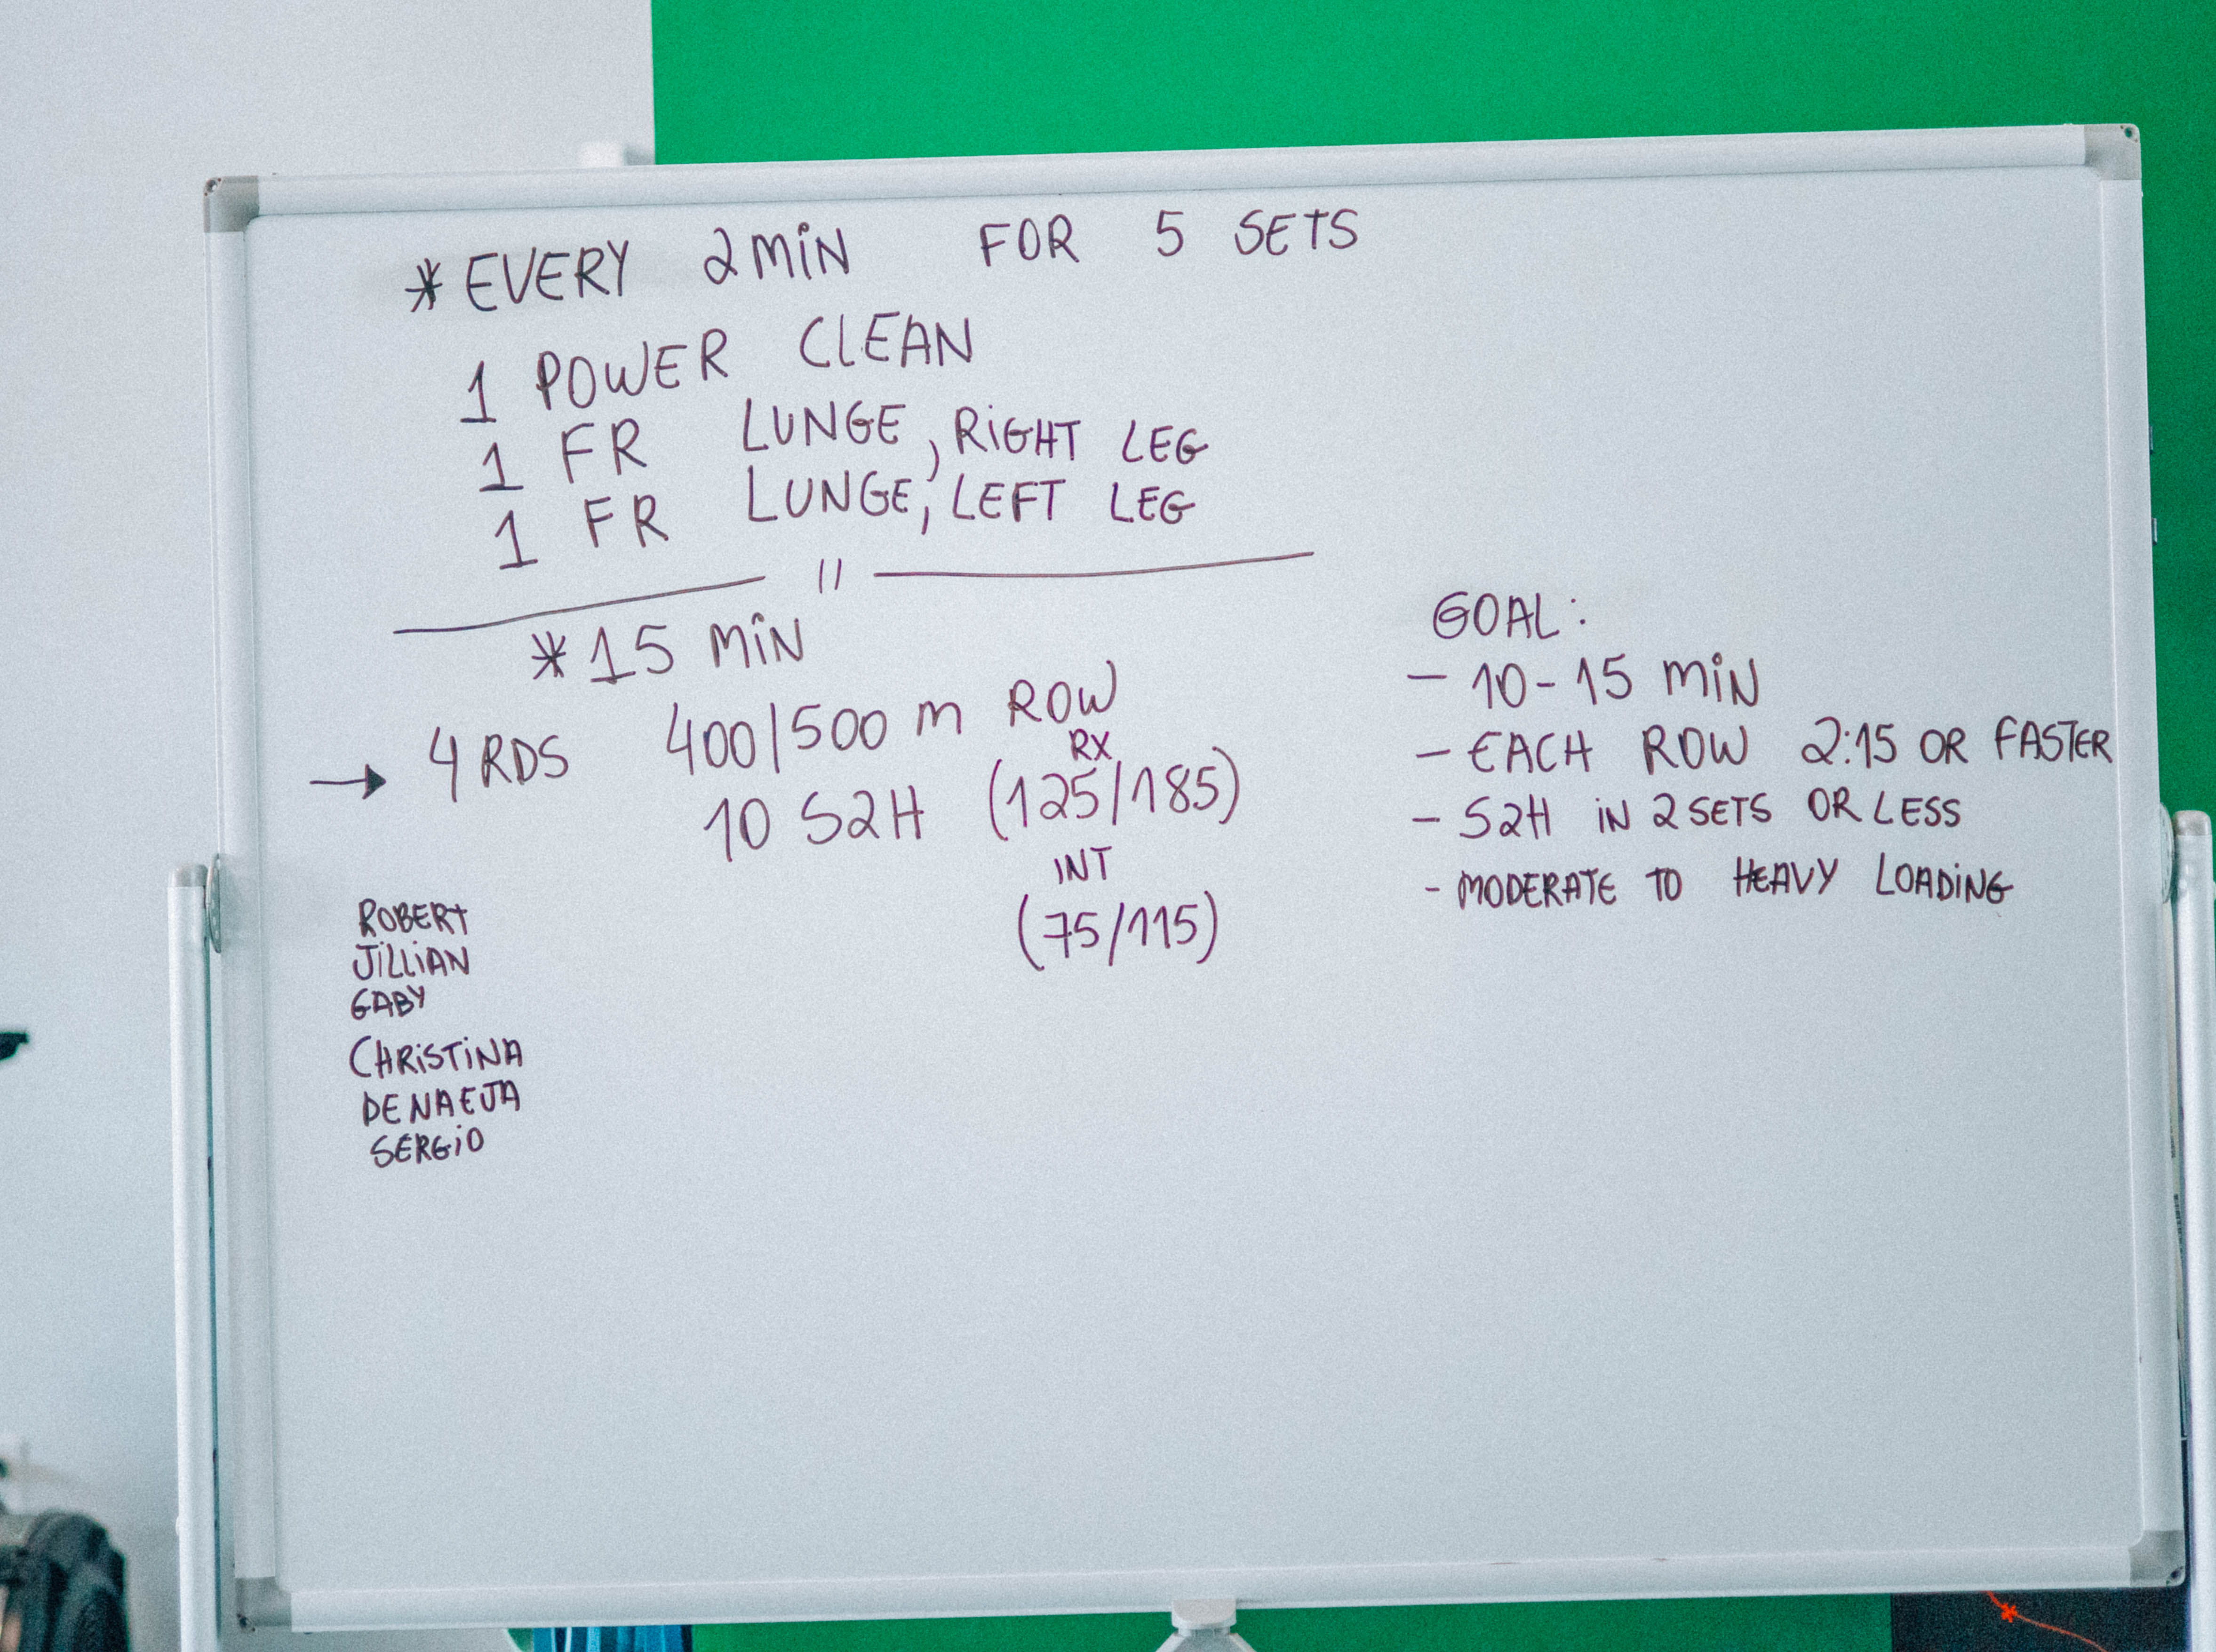 *EVERY 2 MIN FOR 5 SETS
1 POWER CLEAN
1 FR LUNGE, RIGHT LEG
1 FR LUNGE, LEFT LEG
//
*15 MIN
→ 4 RDS 400/500 m ROW
RX
10 S2H (125/185)
INT
(75/115)
GOAL:
- 10-15 MIN
- EACH ROW 2:15 OR FASTER
- S2H IN 2 SETS OR LESS
- MODERATE TO HEAVY LOADING
ROBERT
JILLIAN
GABY
CHRISTINA
DENAEJA
SERGIO